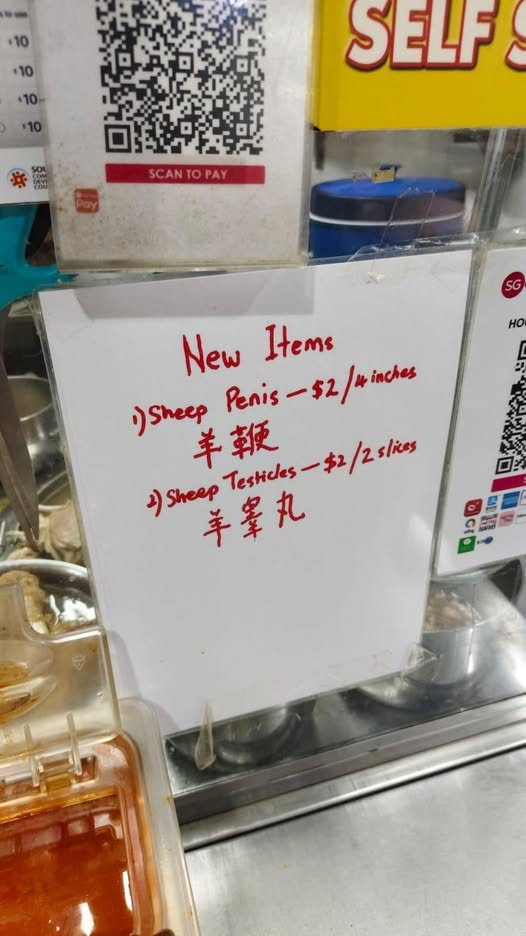 $10
$10
$10
SCAN TO PAY
Pay
SELF
SG
New Items
1) Sheep Penis — $2/4 inches
羊鞭
2) Sheep Testicles — $2/2 slices
羊睾丸